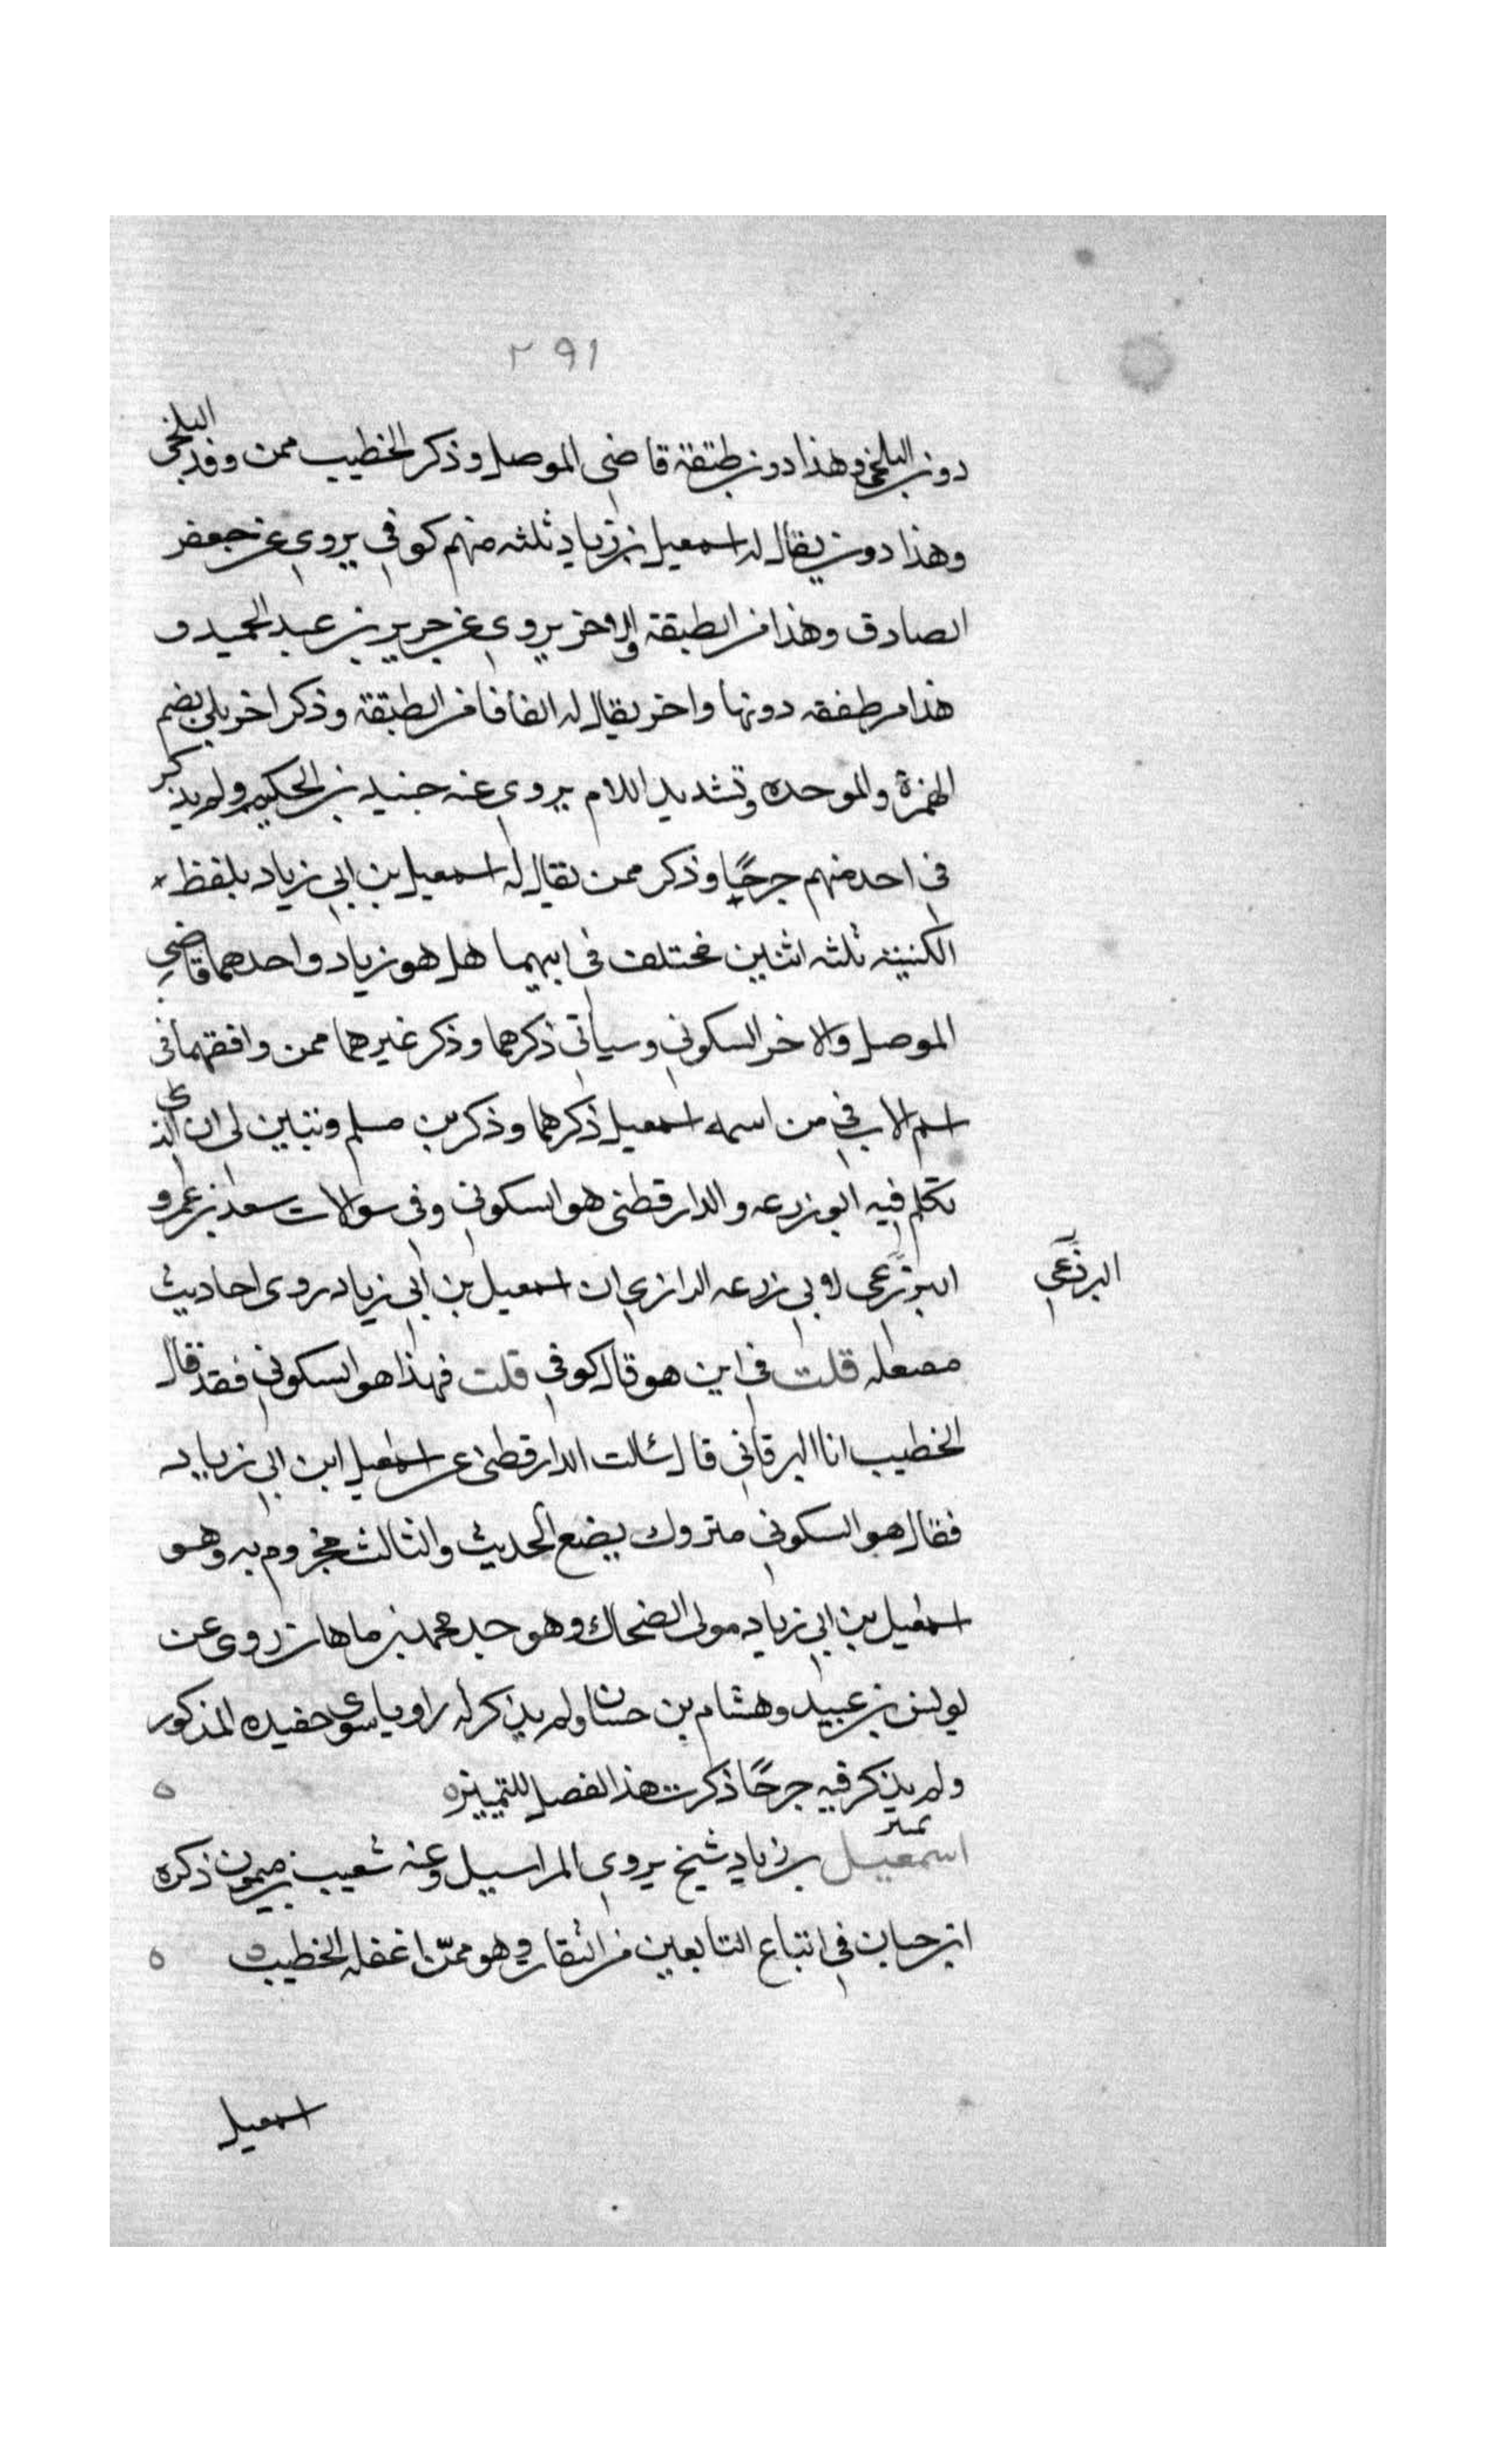 ٢٩١
دون البلخي وهذا دون طبقة قاضي الموصل وذكر الخطيب ممن وفد البلخي
وهذا دون يقال له اسمعيل بن زياد ثلثه منهم كوفي يروي عن جعفر
الصادق وهذا من الطبقة والاخر يروي عن جرير بن عبد الحميد و
هذا من طفقه دونها واخر يقال له الفافا من الطبقة وذكر اخر بلي بضم
الهمزة والموحده وتشديد اللام يروي عنه جنيد بن الحكيم ولم يذكر
في احد منهم جرحًا وذكر ممن يقال له اسمعيل بن ابي زياد بلفظ
الكنيته ثلثه اثنين مختلف في ابيهما هل هو زياد واحدهما قاضي
الموصل والاخر السكوني وسياتي ذكرهما وذكر غيرهما ممن وافقهما في
اسم الاب في من اسمه اسمعيل ذكرهما وذكر بن مسلم وتبين لي ان الذي
تكلم فيه ابو زرعه والدارقطني هو السكوني وفي سوالات سعد بن عمرو
البرذعي لابي زرعه الرازي ان اسمعيل بن ابي زياد روى احاديث
البرذعي
مفعله قلت في اين هو قال كوفي قلت فهذا هو السكوني فقد قال
الخطيب انا البرقاني قال سالت الدارقطني عن اسمعيل ابن ابي زياد
فقال هو السكوني متروك يضع الحديث والثالث مجزوم به وهو
اسمعيل بن ابي زياد مولى الضحاك وهو جد محمد بن ماهان روى عن
يونس بن عبيد وهشام بن حسان ولم يذكر له راويا سوى حفيده المذكور
ولم يذكر فيه جرحًا ذكرت هذا الفصل للتمييزه ه
تمييز
اسمعيل بن زياد شيخ يروي المراسيل وعنه شعيب بن ميمون ذكره
ابن حبان في اتباع التابعين من الثقات وهو ممّن اغفله الخطيب ه
اسمعيل